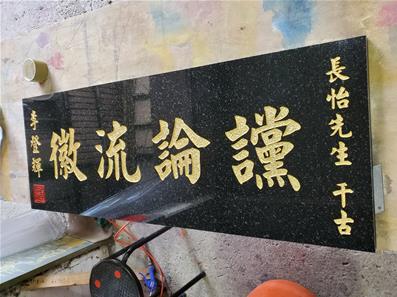 長怡先生 千古
讜論流徽
李登輝